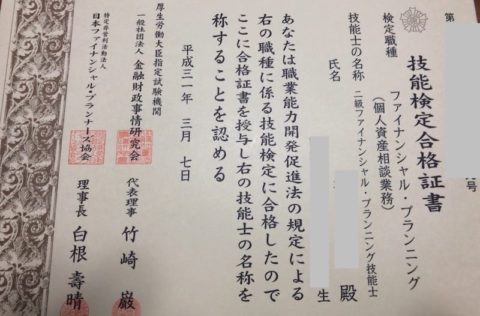 第
号
技能検定合格証書
検定職種
ファイナンシャル・プランニング
(個人資産相談業務)
技能士の名称
二級ファイナンシャル・プランニング技能士
氏名
殿
生
あなたは職業能力開発促進法の規定による
右の職種に係る技能検定に合格したので
ここに合格証書を授与し右の技能士の名称を
称することを認める
平成三一年 三月 七日
厚生労働大臣指定試験機関
一般社団法人 金融財政事情研究会
代表理事 竹崎 巌
特定非営利活動法人
日本ファイナンシャル・プランナーズ協会
理事長 白根 壽晴